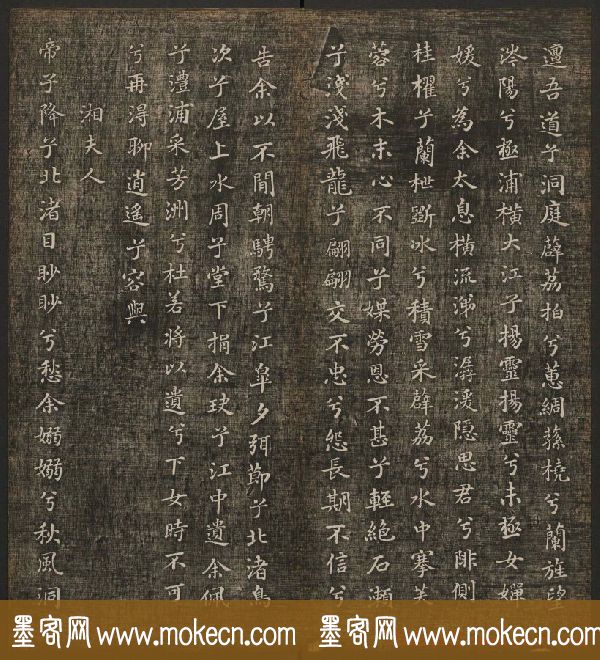 邅吾道兮洞庭薜荔拍兮蕙綢蓀橈兮蘭旌望
涔陽兮極浦橫大江兮揚靈揚靈兮未極女嬋
媛兮為余太息橫流涕兮潺湲隱思君兮陫側
桂櫂兮蘭枻斲冰兮積雪采薜荔兮水中搴芙
蓉兮木末心不同兮媒勞恩不甚兮輕絕石瀨
兮淺淺飛龍兮翩翩交不忠兮怨長期不信兮
告余以不閒朝騁騖兮江皋夕弭節兮北渚鳥
次兮屋上水周兮堂下捐余玦兮江中遺余佩
兮澧浦采芳洲兮杜若將以遺兮下女時不可
兮再得聊逍遙兮容與
湘夫人
帝子降兮北渚目眇眇兮愁余嫋嫋兮秋風洞
墨客网 www.mokecn.com 墨客网 www.mokecn.com